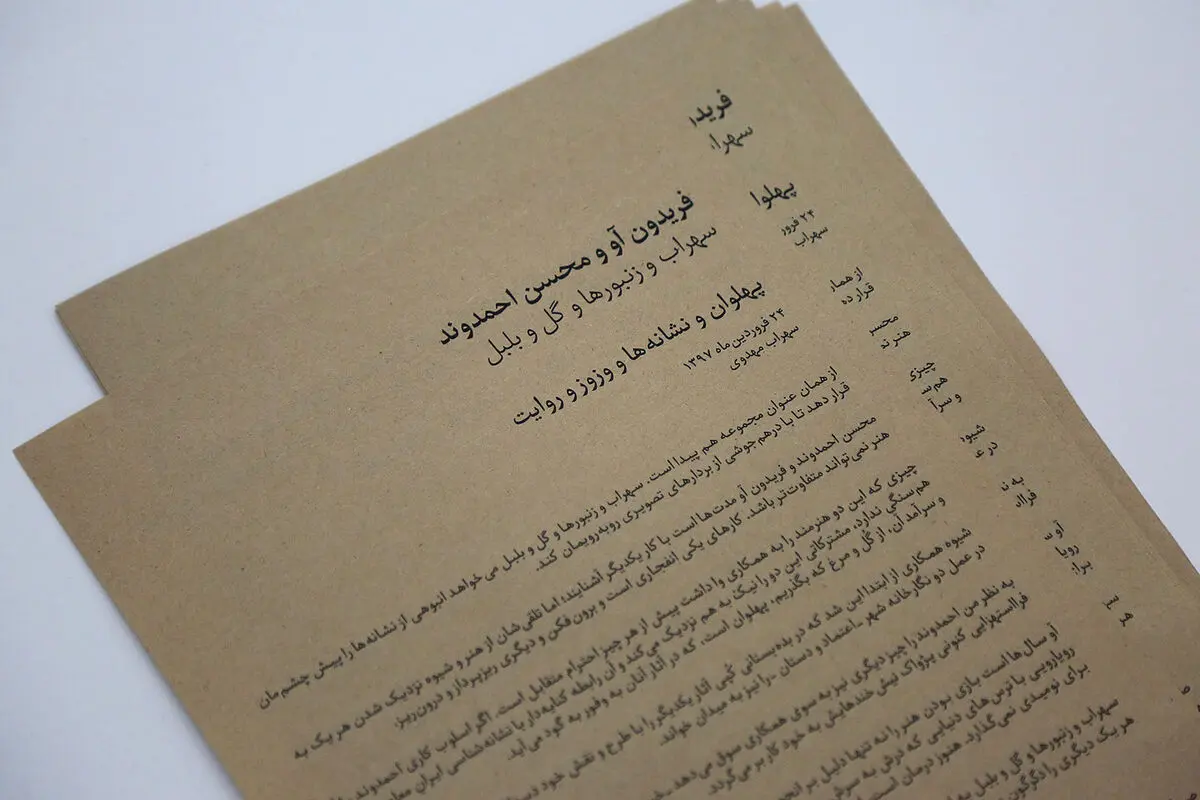 فریدون آو و محسن احمدوند
سهراب و زنبورها و گل و بلبل
پهلوان و نشانه‌ها و وزوز و روایت
۲۴ فروردین ماه ۱۳۹۷
سهراب مهدوی
از همان عنوان مجموعه هم پیدا است. سهراب و زنبورها و گل و بلبل می‌خواهد انبوهی از نشانه‌ها را پیش چشم‌مان
قرار دهد تا با درهم‌جوشی از بردارهای تصویری روبه‌رویمان کند.
محسن احمدوند و فریدون آو مدت‌ها است با کار یکدیگر آشنایند؛ اما تلقی‌شان از هنر و شیوه نزدیک شدن هر یک به
هنر نمی‌تواند متفاوت‌تر باشد. کارهای یکی انفجاری است و برون‌فکن و دیگری ریزپرداز و درون‌ریز.
چیزی که این دو هنرمند را به همکاری واداشت پیش از هر چیز احترام متقابل است. اگر اسلوب کاری احمدوند
هم‌سنگی ندارد، مشترکاتی این دو را نیک به هم نزدیک می‌کند و آن رابطه کنایه‌دار با نشانه‌شناسی ایران
و سرآمد آن، از گل و مرغ که بگذریم، پهلوان است، که در آثار آنان به وفور به گود می‌آید.
شیوه همکاری از ابتدا این شد که در بده‌بستانی کپی آثار یکدیگر را با طرح و نقش خود
در عمل دو نگارخانه شهر ـ اعتماد و دستان ـ را نیز به میدان خواند.
به نظر من احمدوند را چیز دیگری نیز به سوی همکاری سوق می‌دهد
فرااستهزایی کنونی پژواک نیش‌خندهایش به خود کار بر می‌گردد.
آو سال‌ها است بازی بودن هنر را نه تنها دلیل بر
رویارویی با ترس‌های دنیایی که درش به
برای نومیدی نمی‌گذارد. هنوز درمان است
سهراب و زنبورها و گل و بلبل به
هر یک دیگری را دگرگون
فرید
سهرا
پهلوا
۲۴ فرور
سهراب
از همان
قرار ده
محس
هنر نم
چیزی
هم‌س
و سرآ
شیو
در ع
به ن
فراا
آو س
رویا
برا